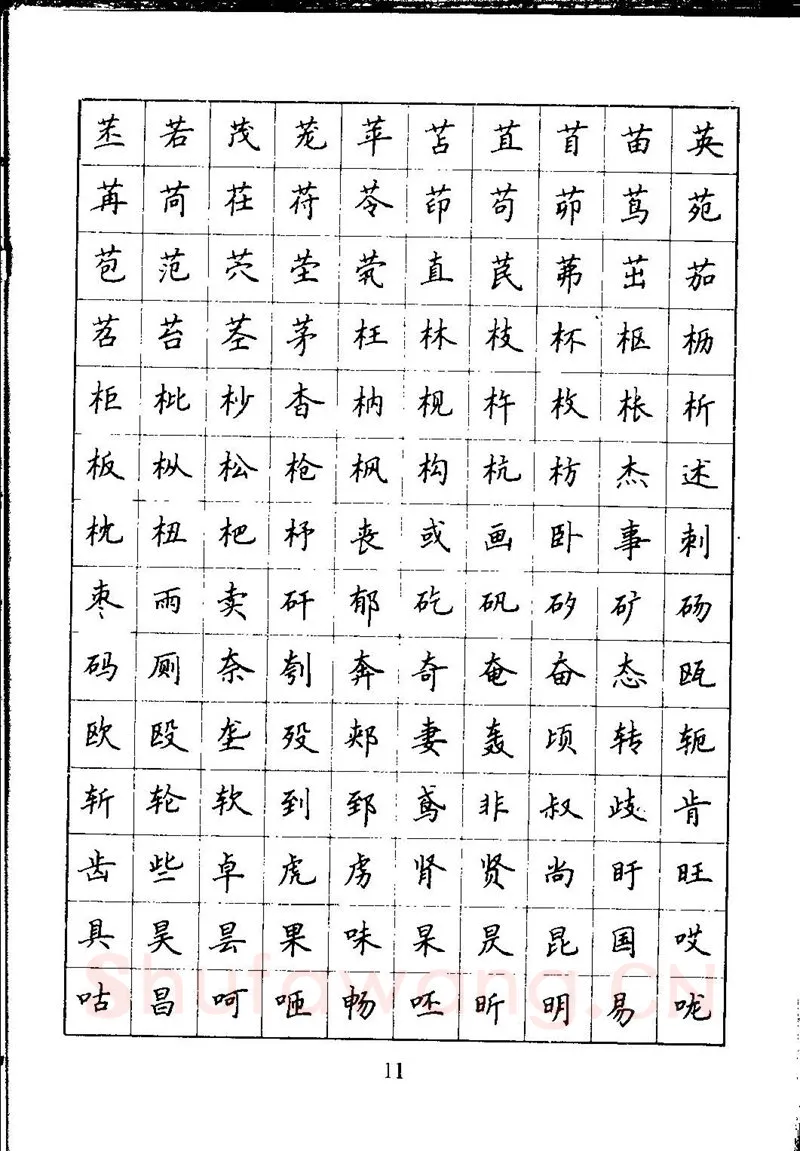 苤若茂茏苹苫苴苜苗英
苒苘茌苻苓茚苟茆茑苑
苞范茓茔茕直苠茀茁茄
苕苔茎茅枉林枝杯枢枥
柜枇杪杳枘枧杵枚枨析
板枞松枪枫构杭枋杰述
枕杻杷杼丧或画卧事刺
枣雨卖矸郁矻矾矽矿砀
码厕奈刳奔奇奄奋态瓯
欧殴垄殁郏妻轰顷转轭
斩轮软到郅鸢非叔歧肯
齿些卓虎虏肾贤尚盱旺
具昊昙果味杲昃昆国哎
咕昌呵咂畅呸昕明易咙
Shufawang.CN
11